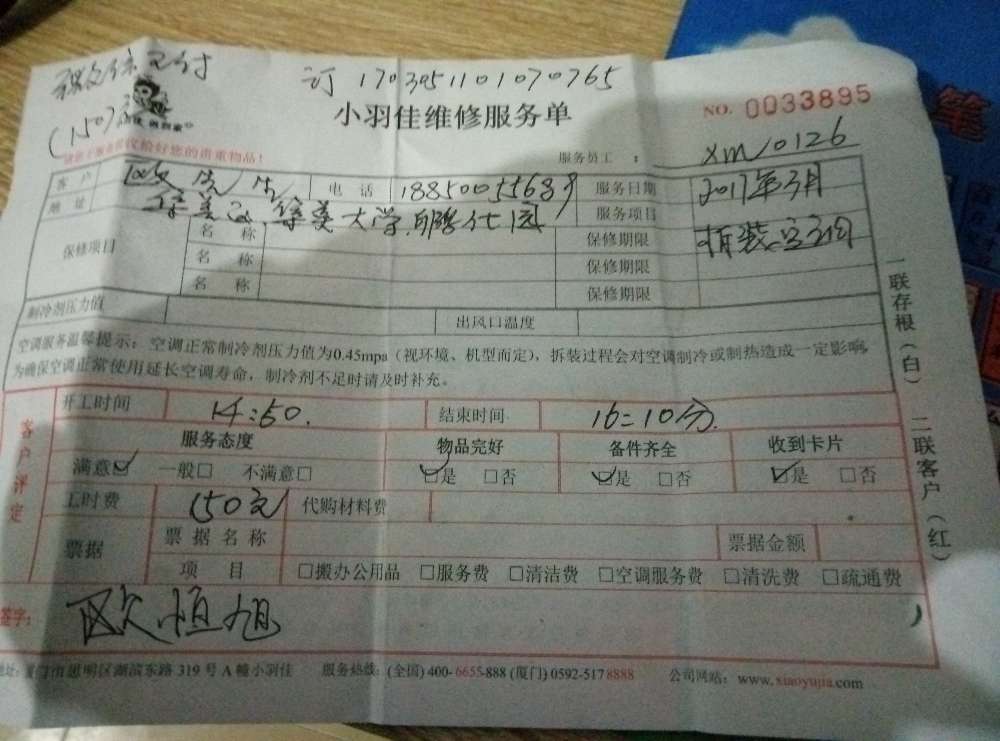 支付 订 170305110107​0765
(150元)
小羽佳维修服务单 NO. 0033895
仅给好您的贵重物品！ 服务员工： xm10126
客户 欧先生 电话 18850055689 服务日期 2017年3月
地址 集美区.集美大学 服务项目 拆装空调
保修项目 名称 保修期限
名称 保修期限
名称 保修期限
制冷剂压力值 出风口温度
空调服务温馨提示：空调正常制冷剂压力值为0.45mpa（视环境、机型而定），拆装过程会对空调制冷或制热造成一定影响，
为确保空调正常使用延长空调寿命，制冷剂不足时请及时补充。
客户评定
开工时间 14:50. 结束时间 16:10分.
服务态度 物品完好 备件齐全 收到卡片
满意☑ 一般□ 不满意□ ☑是 □否 ☑是 □否 ☑是 □否
工时费 150元 代购材料费
票据 票据名称 票据金额
项目 □搬办公用品 □服务费 □清洁费 □空调服务费 □清洗费 □疏通费
签字： 欧恒旭
地址：厦门市思明区湖滨东路 319 号 A 幢小羽佳 服务热线：(全国) 400-6655-888 (厦门) 0592-5178888 公司网站：www.xiaoyujia.com
一联存根（白） 二联客户（红）
笔